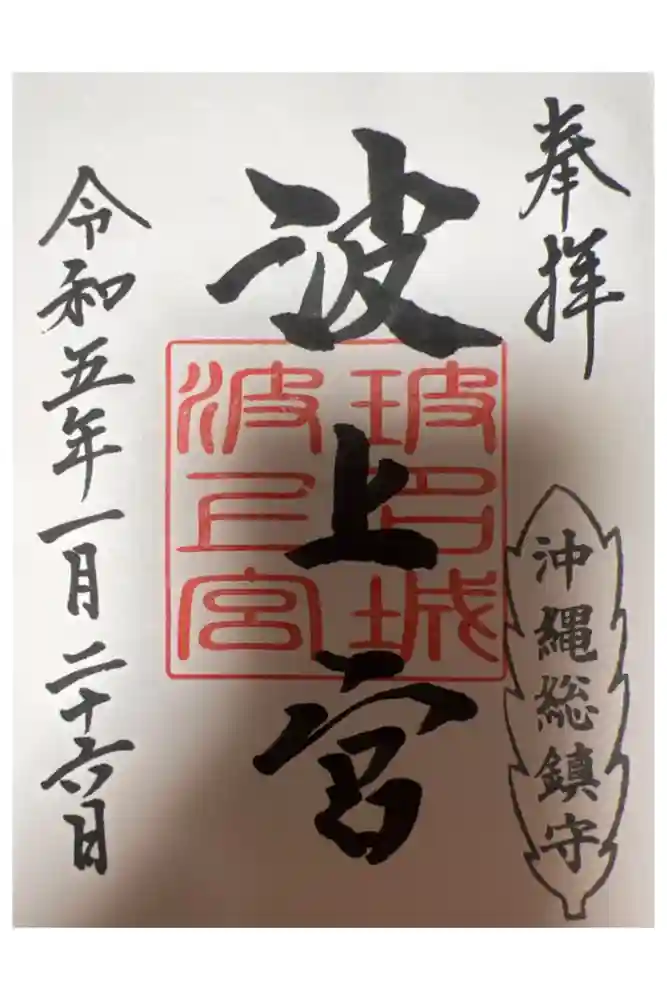 奉拝
沖縄総鎮守
波上宮
玻名城
波上宮
令和五年一月二十六日